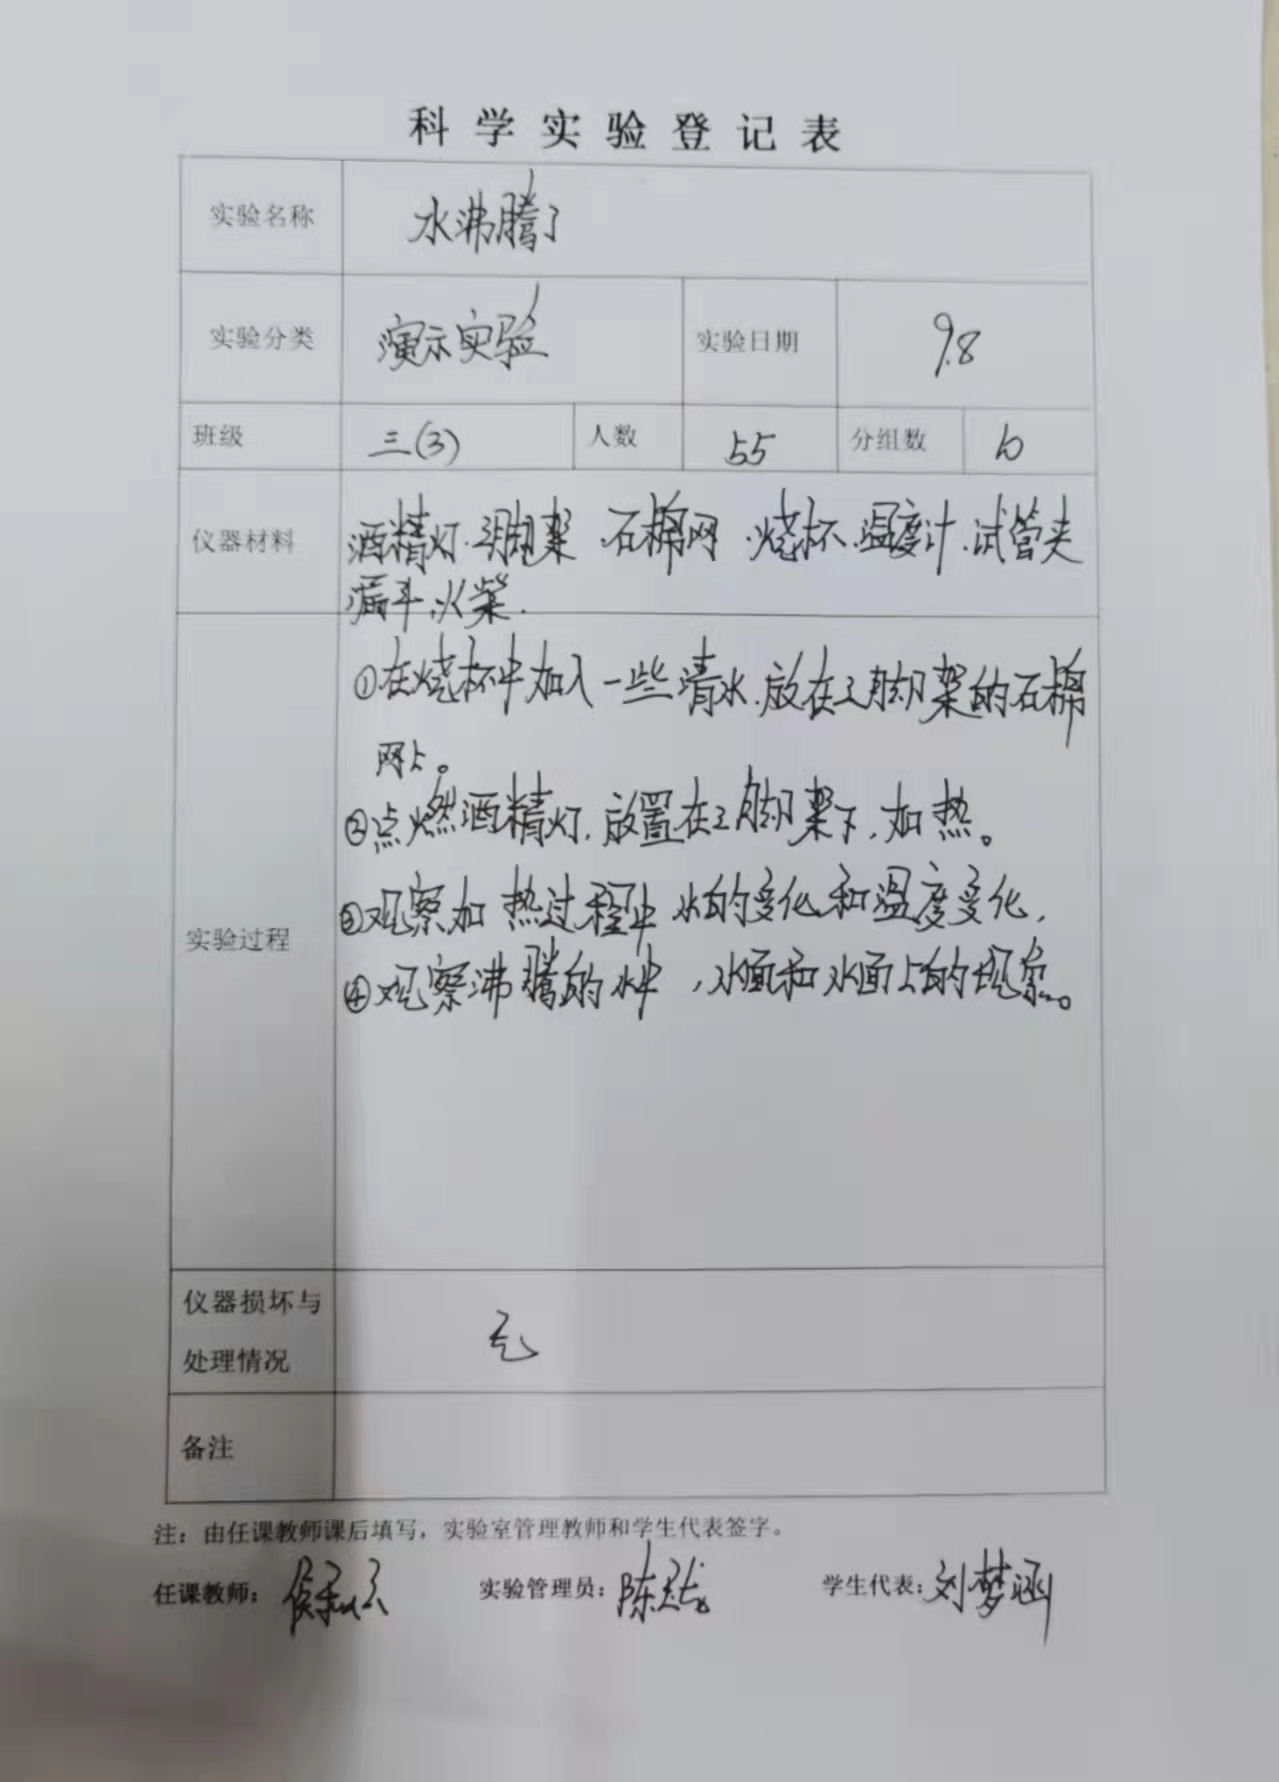 科学实验登记表
实验名称 水沸腾了
实验分类 演示实验 实验日期 9.8
班级 三(3) 人数 55 分组数
仪器材料 酒精灯.三脚架.石棉网.烧杯.温度计.试管夹
漏斗.火柴.
①在烧杯中加入一些清水.放在三脚架的石棉
网上。
②点燃酒精灯,放置在三脚架下,加热。
实验过程 ③观察加热过程中水的变化和温度变化,
④观察沸腾的水中,水面和水面上的现象。
仪器损坏与
处理情况 无
备注
注:由任课教师课后填写,实验室管理教师和学生代表签字。
任课教师: 实验管理员: 陈 学生代表:刘梦涵